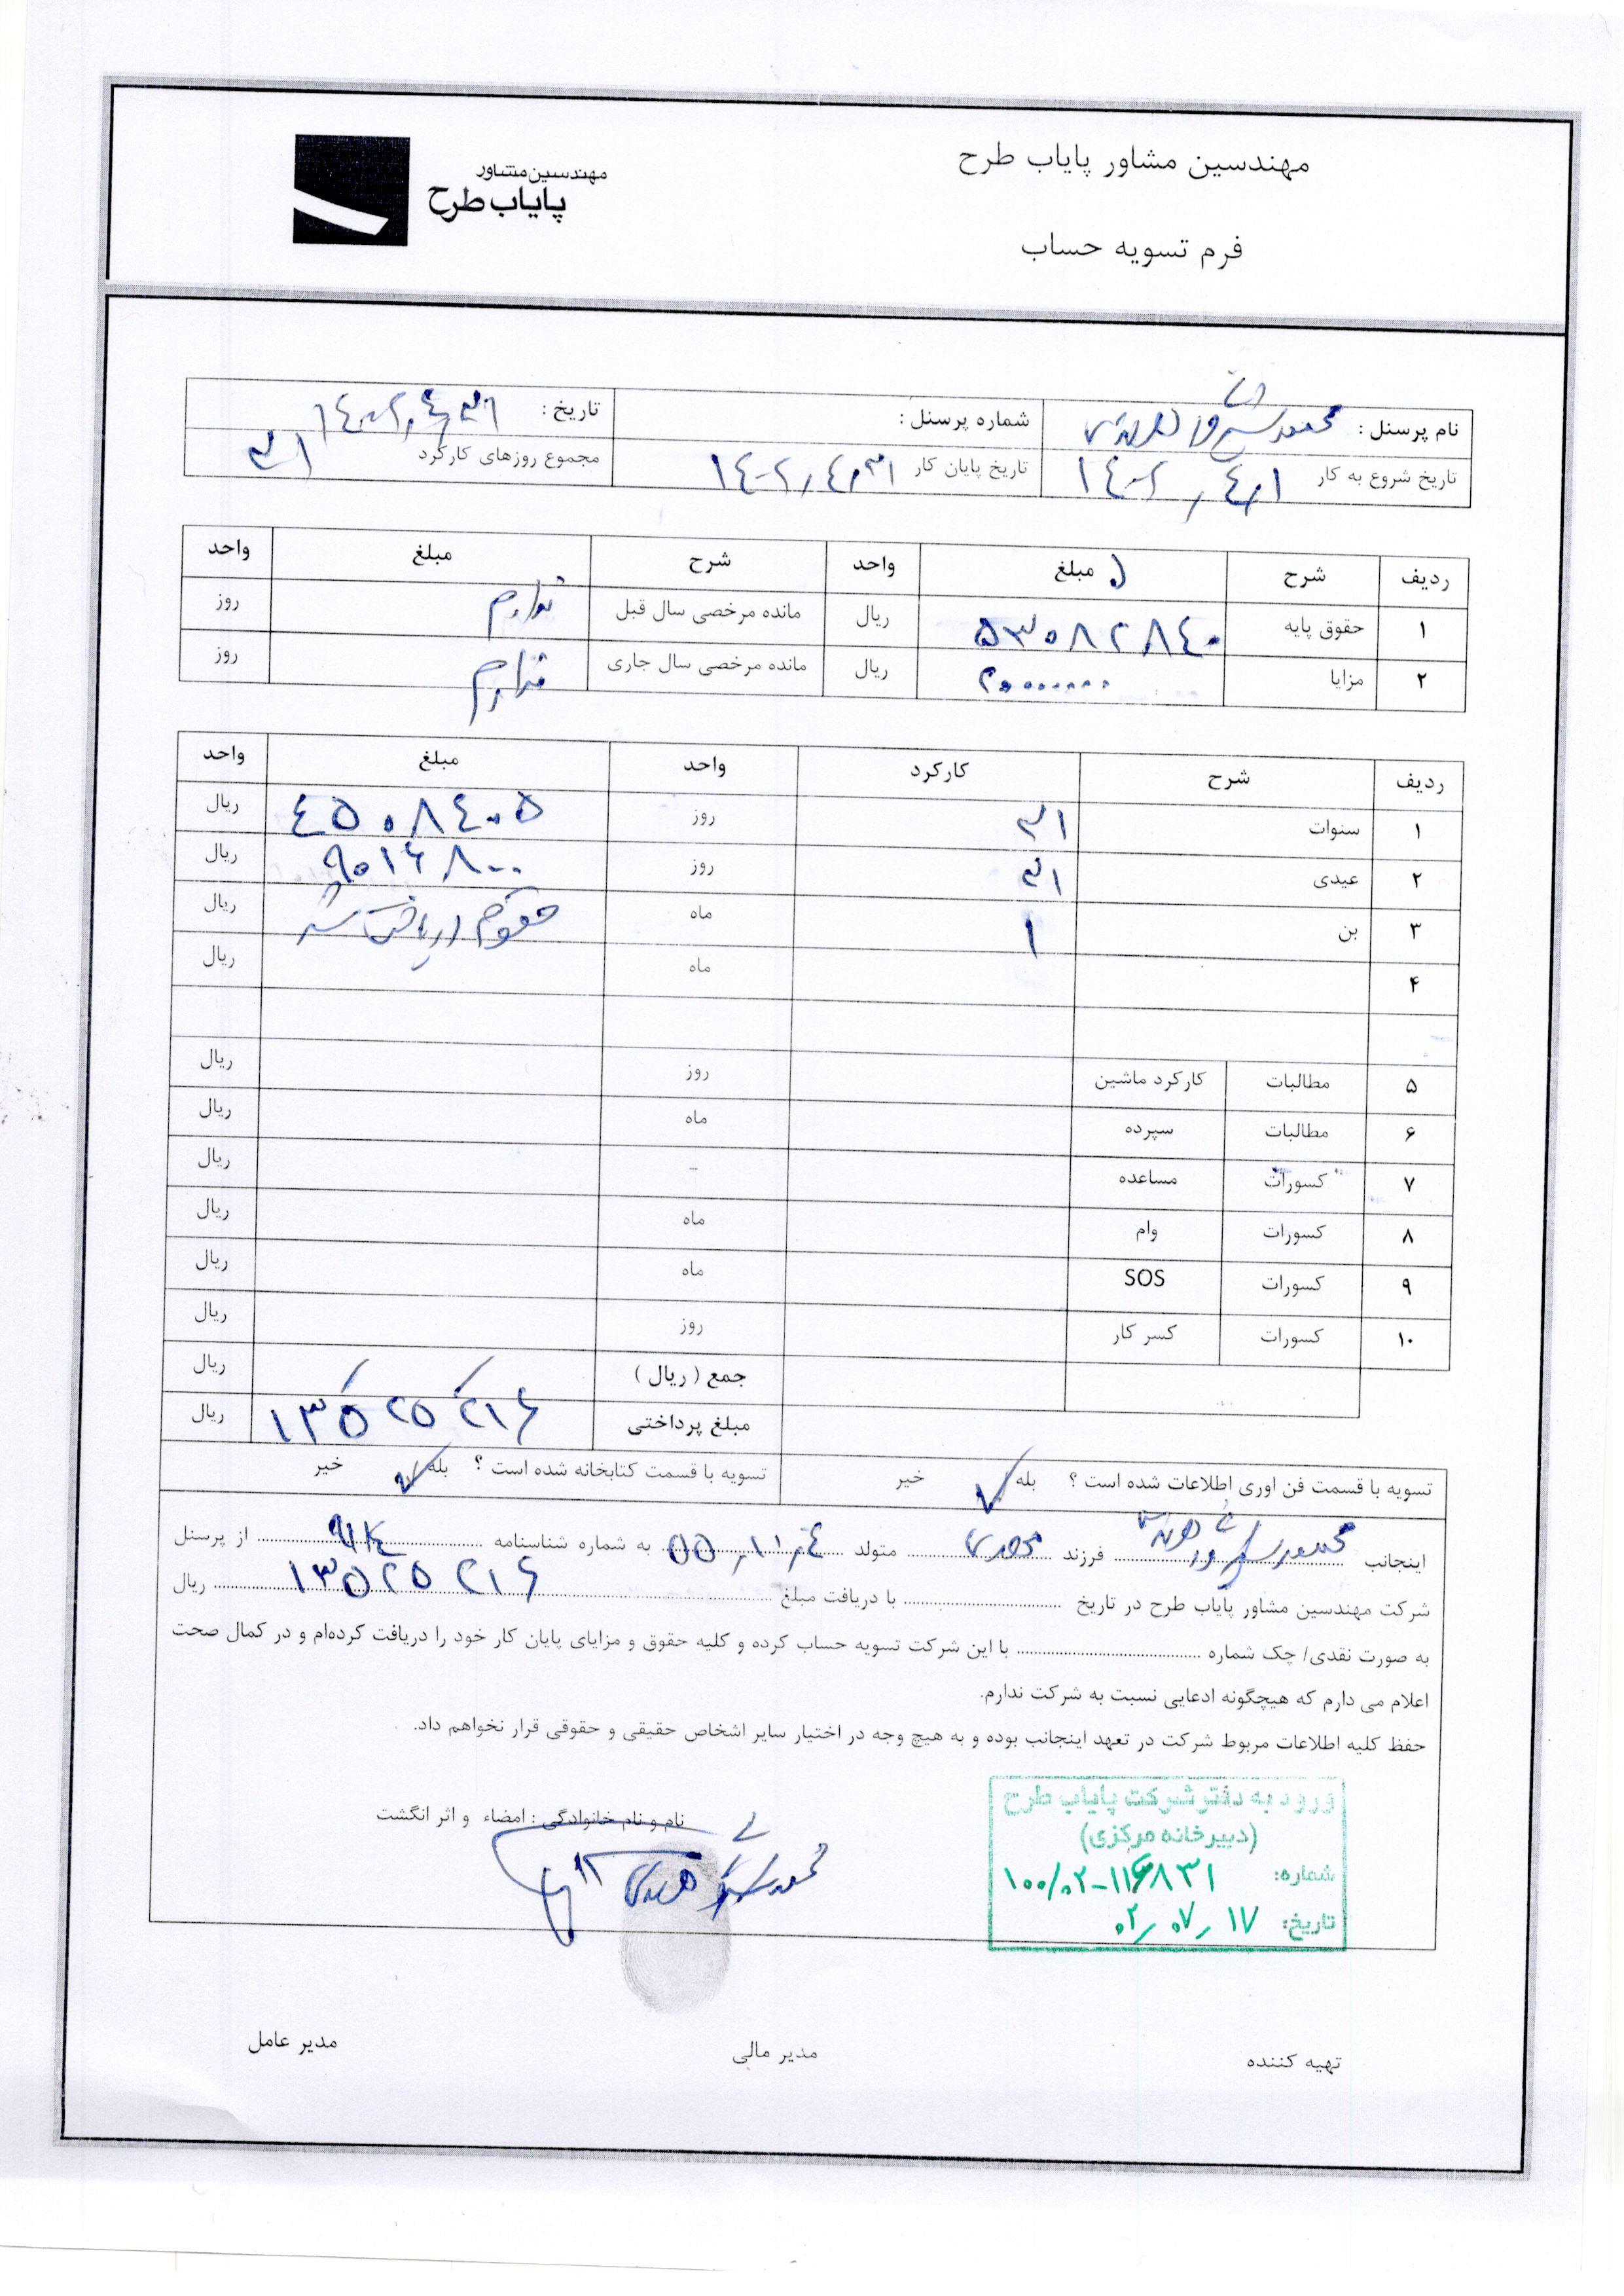 مهندسین مشاور پایاب طرح
مهندسین مشاور
پایاب طرح
فرم تسویه حساب
نام پرسنل : محمود شماره پرسنل : تاریخ : ۱۴۰۲٫۴٫۳۱
تاریخ شروع به کار ۱۴۰۲٫۴٫۱ تاریخ پایان کار ۱۴۰۲٫۴٫۳۱ مجموع روزهای کارکرد ۳۱
ردیف شرح مبلغ واحد شرح مبلغ واحد
۱ حقوق پایه ۵۳۰۸۲۸۴۰ ریال مانده مرخصی سال قبل ندارم روز
۲ مزایا ریال مانده مرخصی سال جاری ندارم روز
ردیف شرح کارکرد واحد مبلغ واحد
۱ سنوات ۳۱ روز ۴۵۰۸۴۰۵ ریال
۲ عیدی ۳۱ روز ۹۰۱۶۸۰۰ ریال
۳ بن ۱ ماه دریافت شد ریال
۴ ماه ریال
۵ مطالبات کارکرد ماشین روز ریال
۶ مطالبات سپرده ماه ریال
۷ کسورات مساعده - ریال
۸ کسورات وام ماه ریال
۹ کسورات SOS ماه ریال
۱۰ کسورات کسر کار روز ریال
جمع ( ریال ) ریال
مبلغ پرداختی ۱۳۵۲۵۲۱۶ ریال
تسویه با قسمت فن اوری اطلاعات شده است ؟ بله ✓ خیر تسویه با قسمت کتابخانه شده است ؟ بله ✓ خیر
اینجانب محمود فرزند متولد ۵۵٫۱۱٫۴ به شماره شناسنامه از پرسنل
شرکت مهندسین مشاور پایاب طرح در تاریخ با دریافت مبلغ ۱۳۵۲۵۲۱۶ ریال
به صورت نقدی/ چک شماره با این شرکت تسویه حساب کرده و کلیه حقوق و مزایای پایان کار خود را دریافت کرده‌ام و در کمال صحت
اعلام می دارم که هیچگونه ادعایی نسبت به شرکت ندارم.
حفظ کلیه اطلاعات مربوط شرکت در تعهد اینجانب بوده و به هیچ وجه در اختیار سایر اشخاص حقیقی و حقوقی قرار نخواهم داد.
نام و نام خانوادگی : امضاء و اثر انگشت
محمود
ورود به دفتر شرکت پایاب طرح
(دبیرخانه مرکزی)
شماره: ۱۰۰/۰۲-۱۱۶۸۳۱
تاریخ: ۰۲٫۰۷٫۱۷
تهیه کننده مدیر مالی مدیر عامل